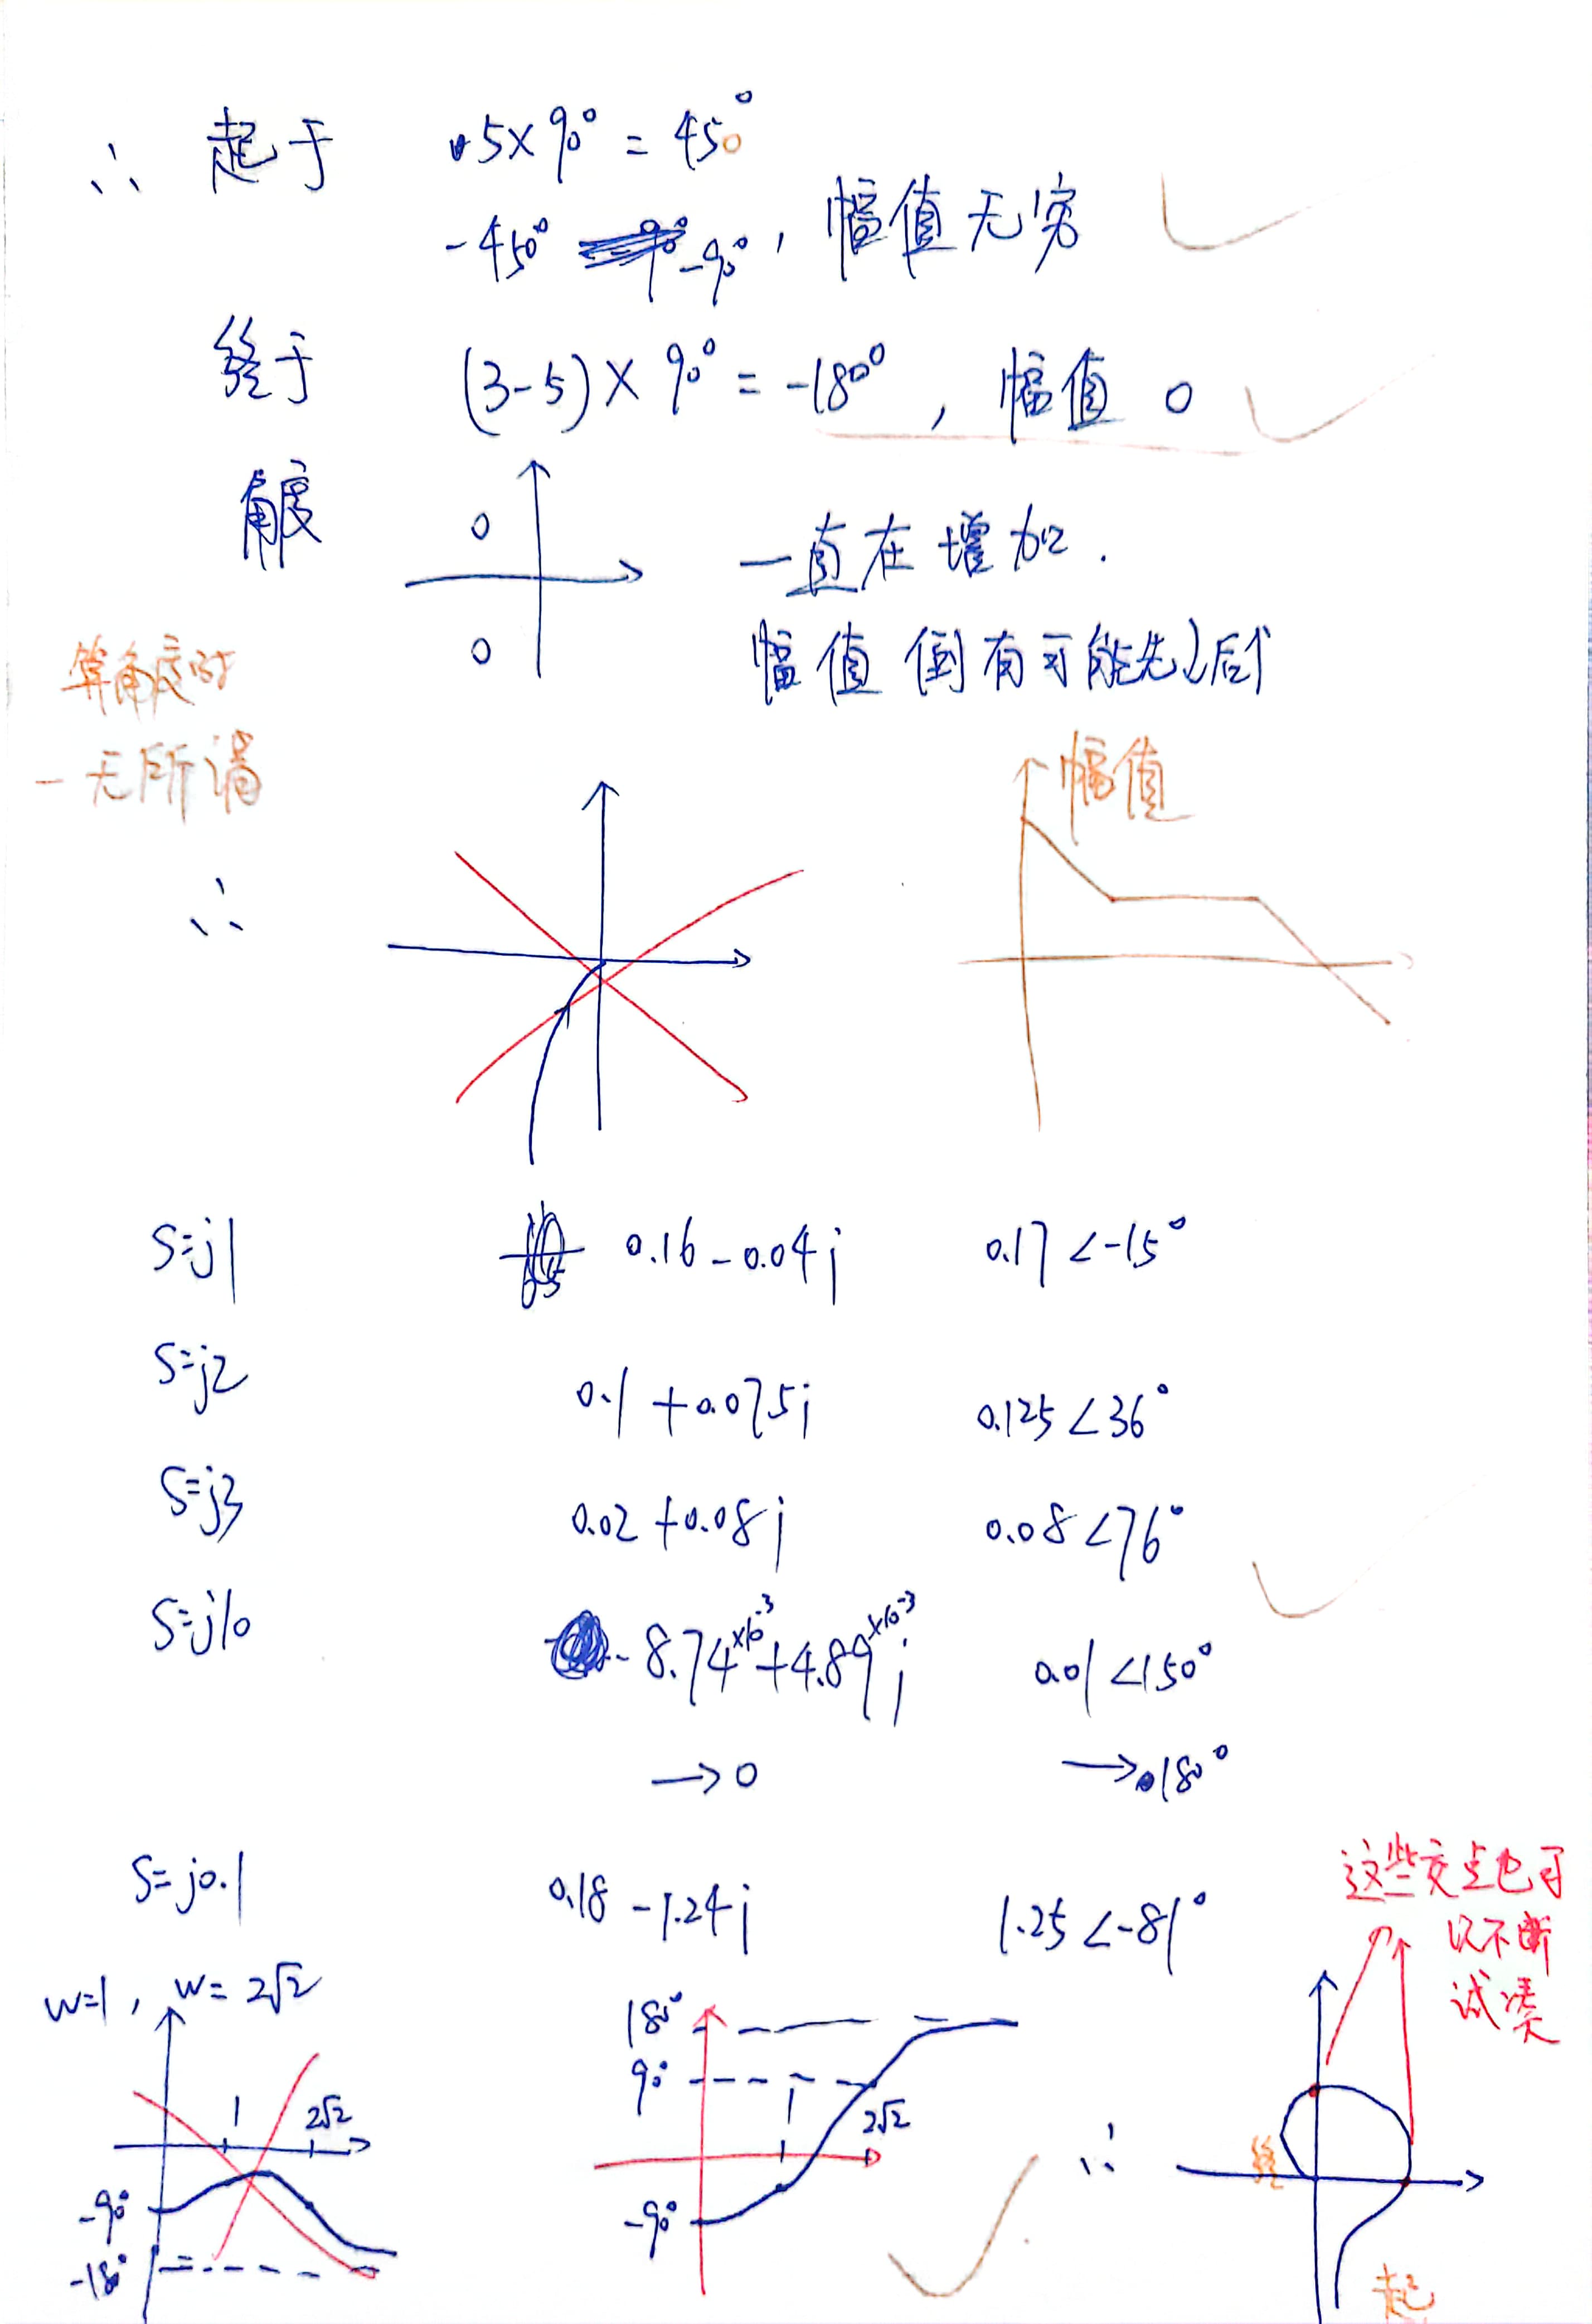 ∴ 起于 .5×90° = 450°
-450° -90°, 幅值无穷
终于 (3-5)×90° = -180°, 幅值 0
角度 0 一直在增加.
0 幅值倒有可能先↓后↑
算角度时
- 无所谓
幅值
∴
S=j1 0.16-0.04j 0.17∠-15°
S=j2 0.1+0.075j 0.125∠36°
S=j3 0.02+0.08j 0.08∠76°
S=j10 -8.74×10⁻³+4.89×10⁻³j 0.01∠150°
→0 →180°
S=j0.1 0.18-1.24j 1.25∠-81°
这些交点也可
以不断
试凑
w=1, w=2√2
1 2√2
-90°
-180°
180°
90°
1 2√2
-90°
∴
终
起